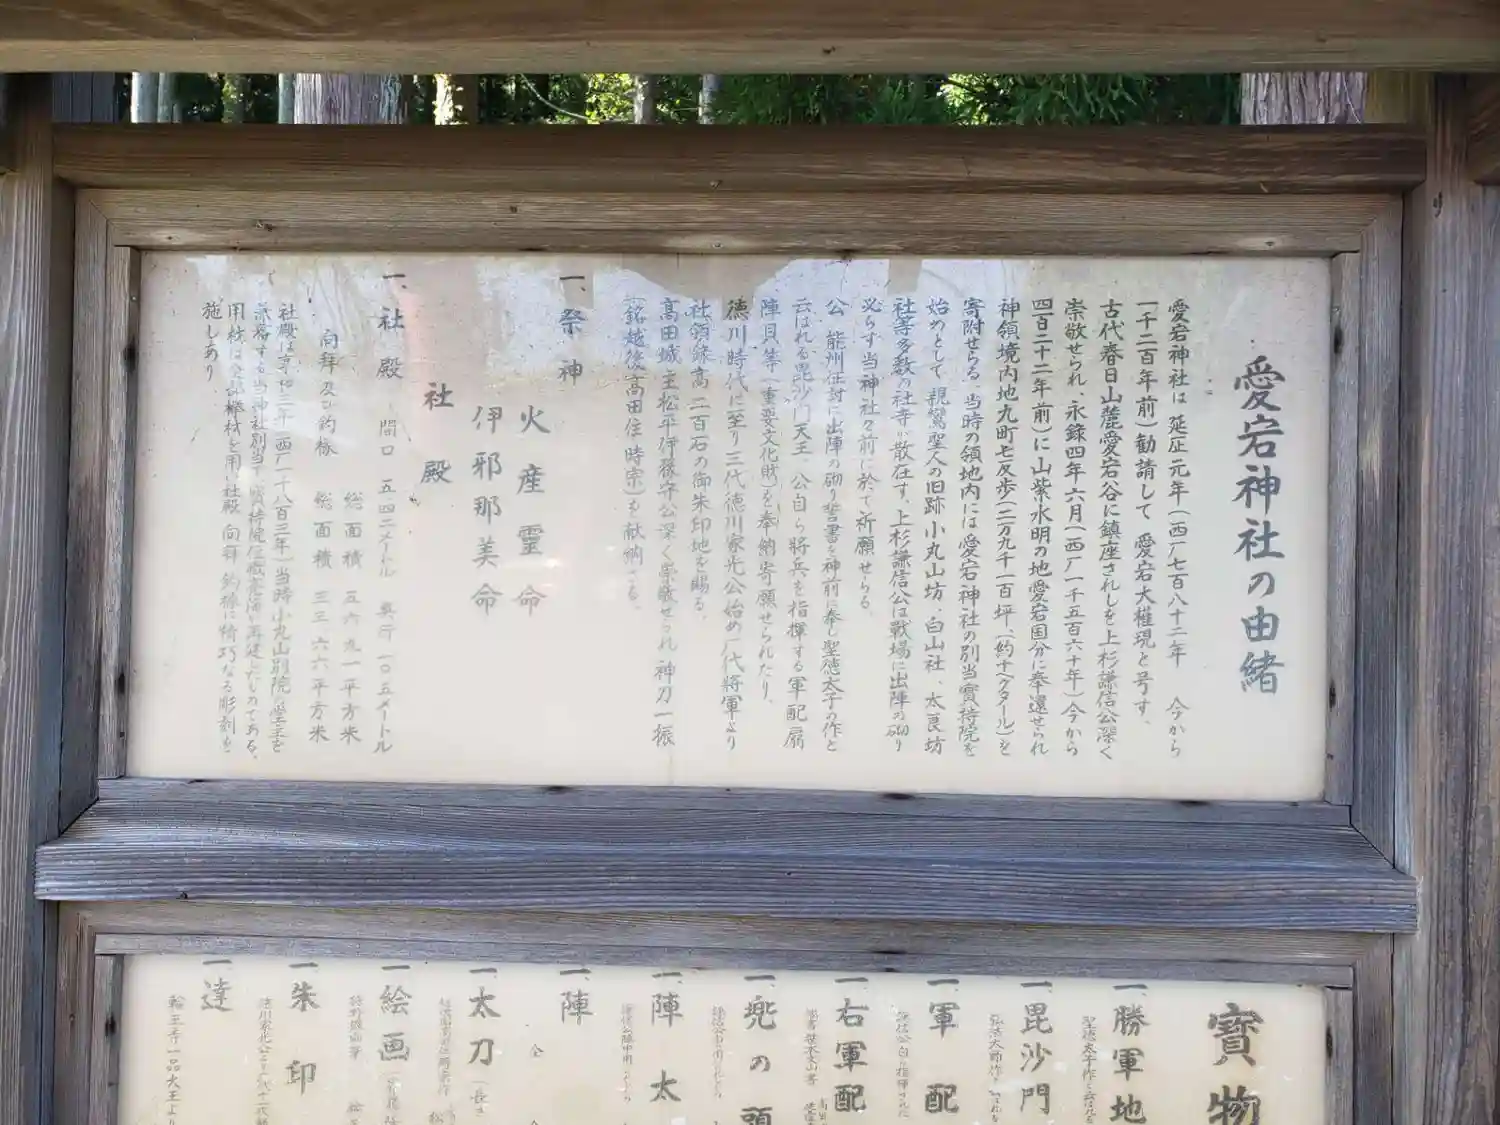 愛宕神社の由緒
愛宕神社は 延暦元年(西厂七百八十二年 今から
一千二百年前)勧請して 愛宕大権現と号す、
古代春日山麓愛宕谷に鎮座されしを上杉謙信公深く
崇敬せられ、永録四年六月(西厂一千五百六十年)今から
四百二十二年前)に山紫水明の地愛宕国分に奉還せられ
神領境内地九町七反歩(二万九千一百坪、(約十ヘクタール)を
寄附せらる、当時の領地内には愛宕神社の別当寳持院を
始めとして 親鸞聖人の旧跡 小丸山坊、白山社、太良坊
社等多数の社寺が散在す、上杉謙信公は戰場に出陣の砌り
必らず当神社々前に於て祈願せらる、
公、能州征討に出陣の砌り誓書を神前に奉し聖徳太子の作と
云はれる毘沙門天王、公自ら將兵を指揮する軍配扇
陣貝等(重要文化財)を奉納寄願せられたり、
徳川時代に至り三代徳川家光公始め厂代将軍より
社領録高 二百石の御朱印地を賜る、
高田城主松平伊豫守公深く崇敬せられ 神刀一振
(銘越後高田住 時宗)を献納さる、
一、祭神
火産霊命
伊邪那美命
社殿
一、社殿 間口 五四二メートル 奥行 一〇五メートル
総面積 五六九一平方米
向拝及び釣橡 総面積 三三六六平方米
用紋は全部欅材を用い社殿 向拝 釣橡に綺巧なる彫刻を
施しあり
寳物
一、勝軍地
聖徳太子作と云はれる
一、毘沙門
弘法大師作と云はれる
一、軍配
謙信公自ら指揮された
一、右軍配
一、兜の頭
一、陣太
一、陣
仝
一、太刀(長さ
一、絵画
狩野
一、朱印
徳川家光公
一、達
輪王寺一品大王より